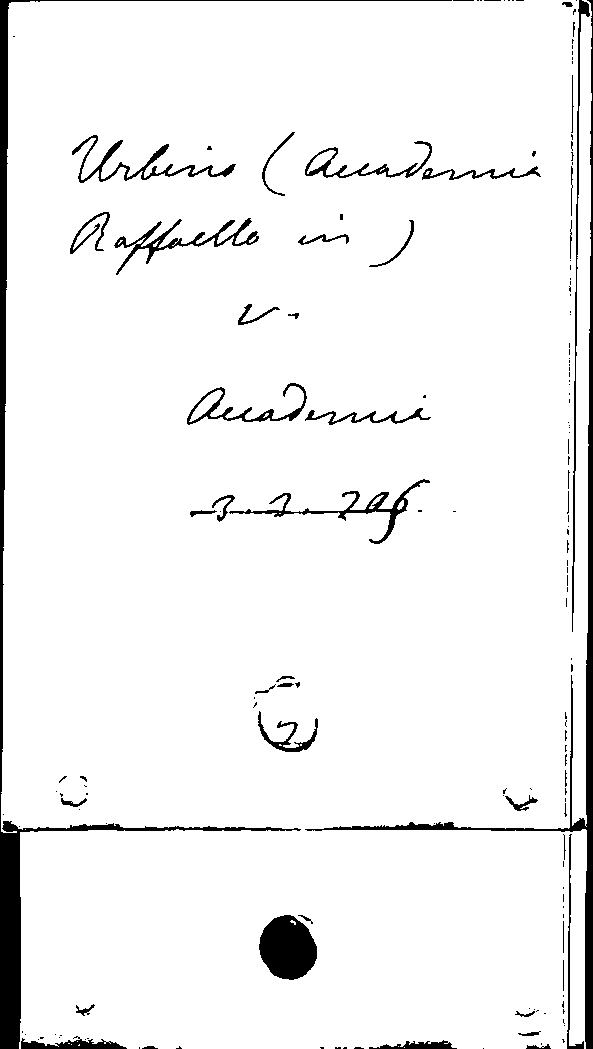 Urbino (Accademia
Raffaello in)
v.
Accademia
3.3.29